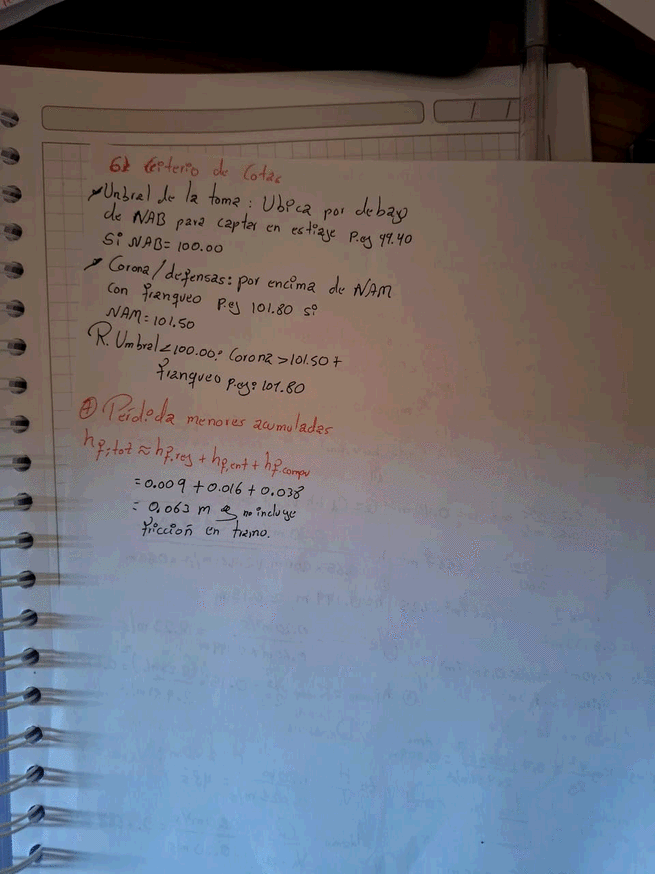 6) Criterio de Cotas
Unbral de la toma: Ubica por debajo
de NAB para captar en estiaje P.ej 99.40
Si NAB = 100.00
Corona/defensas: por encima de NAM
con franqueo P.ej 101.80 si
NAM = 101.50
R. Umbral < 100.00: Corona > 101.50 +
franqueo p.ej: 101.80
7) Perdida menores acumuladas
hf,tot ≈ hf,rej + hf,ent + hf,compu
= 0.009 + 0.016 + 0.038
= 0.063 m no incluye
fricción en tramo.